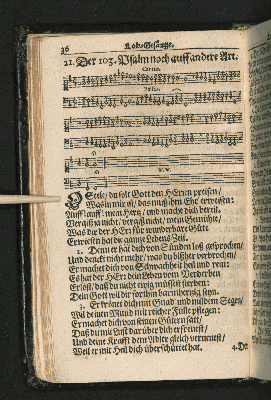 36 Lob-Gesänge.
21. Der 103. Psalm noch auff andere Art.
Cantus.
Bassus.
O Seele, du solt Gott den HErrn preisen/
Was in mir ist, das muß ihm Ehr erweisen:
Auff! auff! mein Hertz/ und mache dich bereit.
Vergiß ja nicht/ vergiß nicht/ mein Gemühte/
Was dir der HErr für wunderbare Güte
Erwiesen hat die gantze Lebens Zeit.
2. Denn er hat dich von Sünden loß gesprochen/
Und denckt nicht mehr/ was du bißher verbrochen/
Er machet dich von Schwachheit heil und rein:
Es hat der HErr dein Leben vom Verderben
Erlöst/ daß du nicht ewig müssest sterben:
Dein Gott wil dir forthin barmhertzig seyn.
3. Er krönet dich mit Gnad und mildem Segen/
Wil deinen Mund mit reicher Fülle pflegen:
Er machet dich von seinen Gütern satt/
Daß du mit Lust darüber dich erfreuest/
Und deine Krafft dem Adler gleich verneuest/
Weil er mit Heil dich überschüttet hat.
4. De